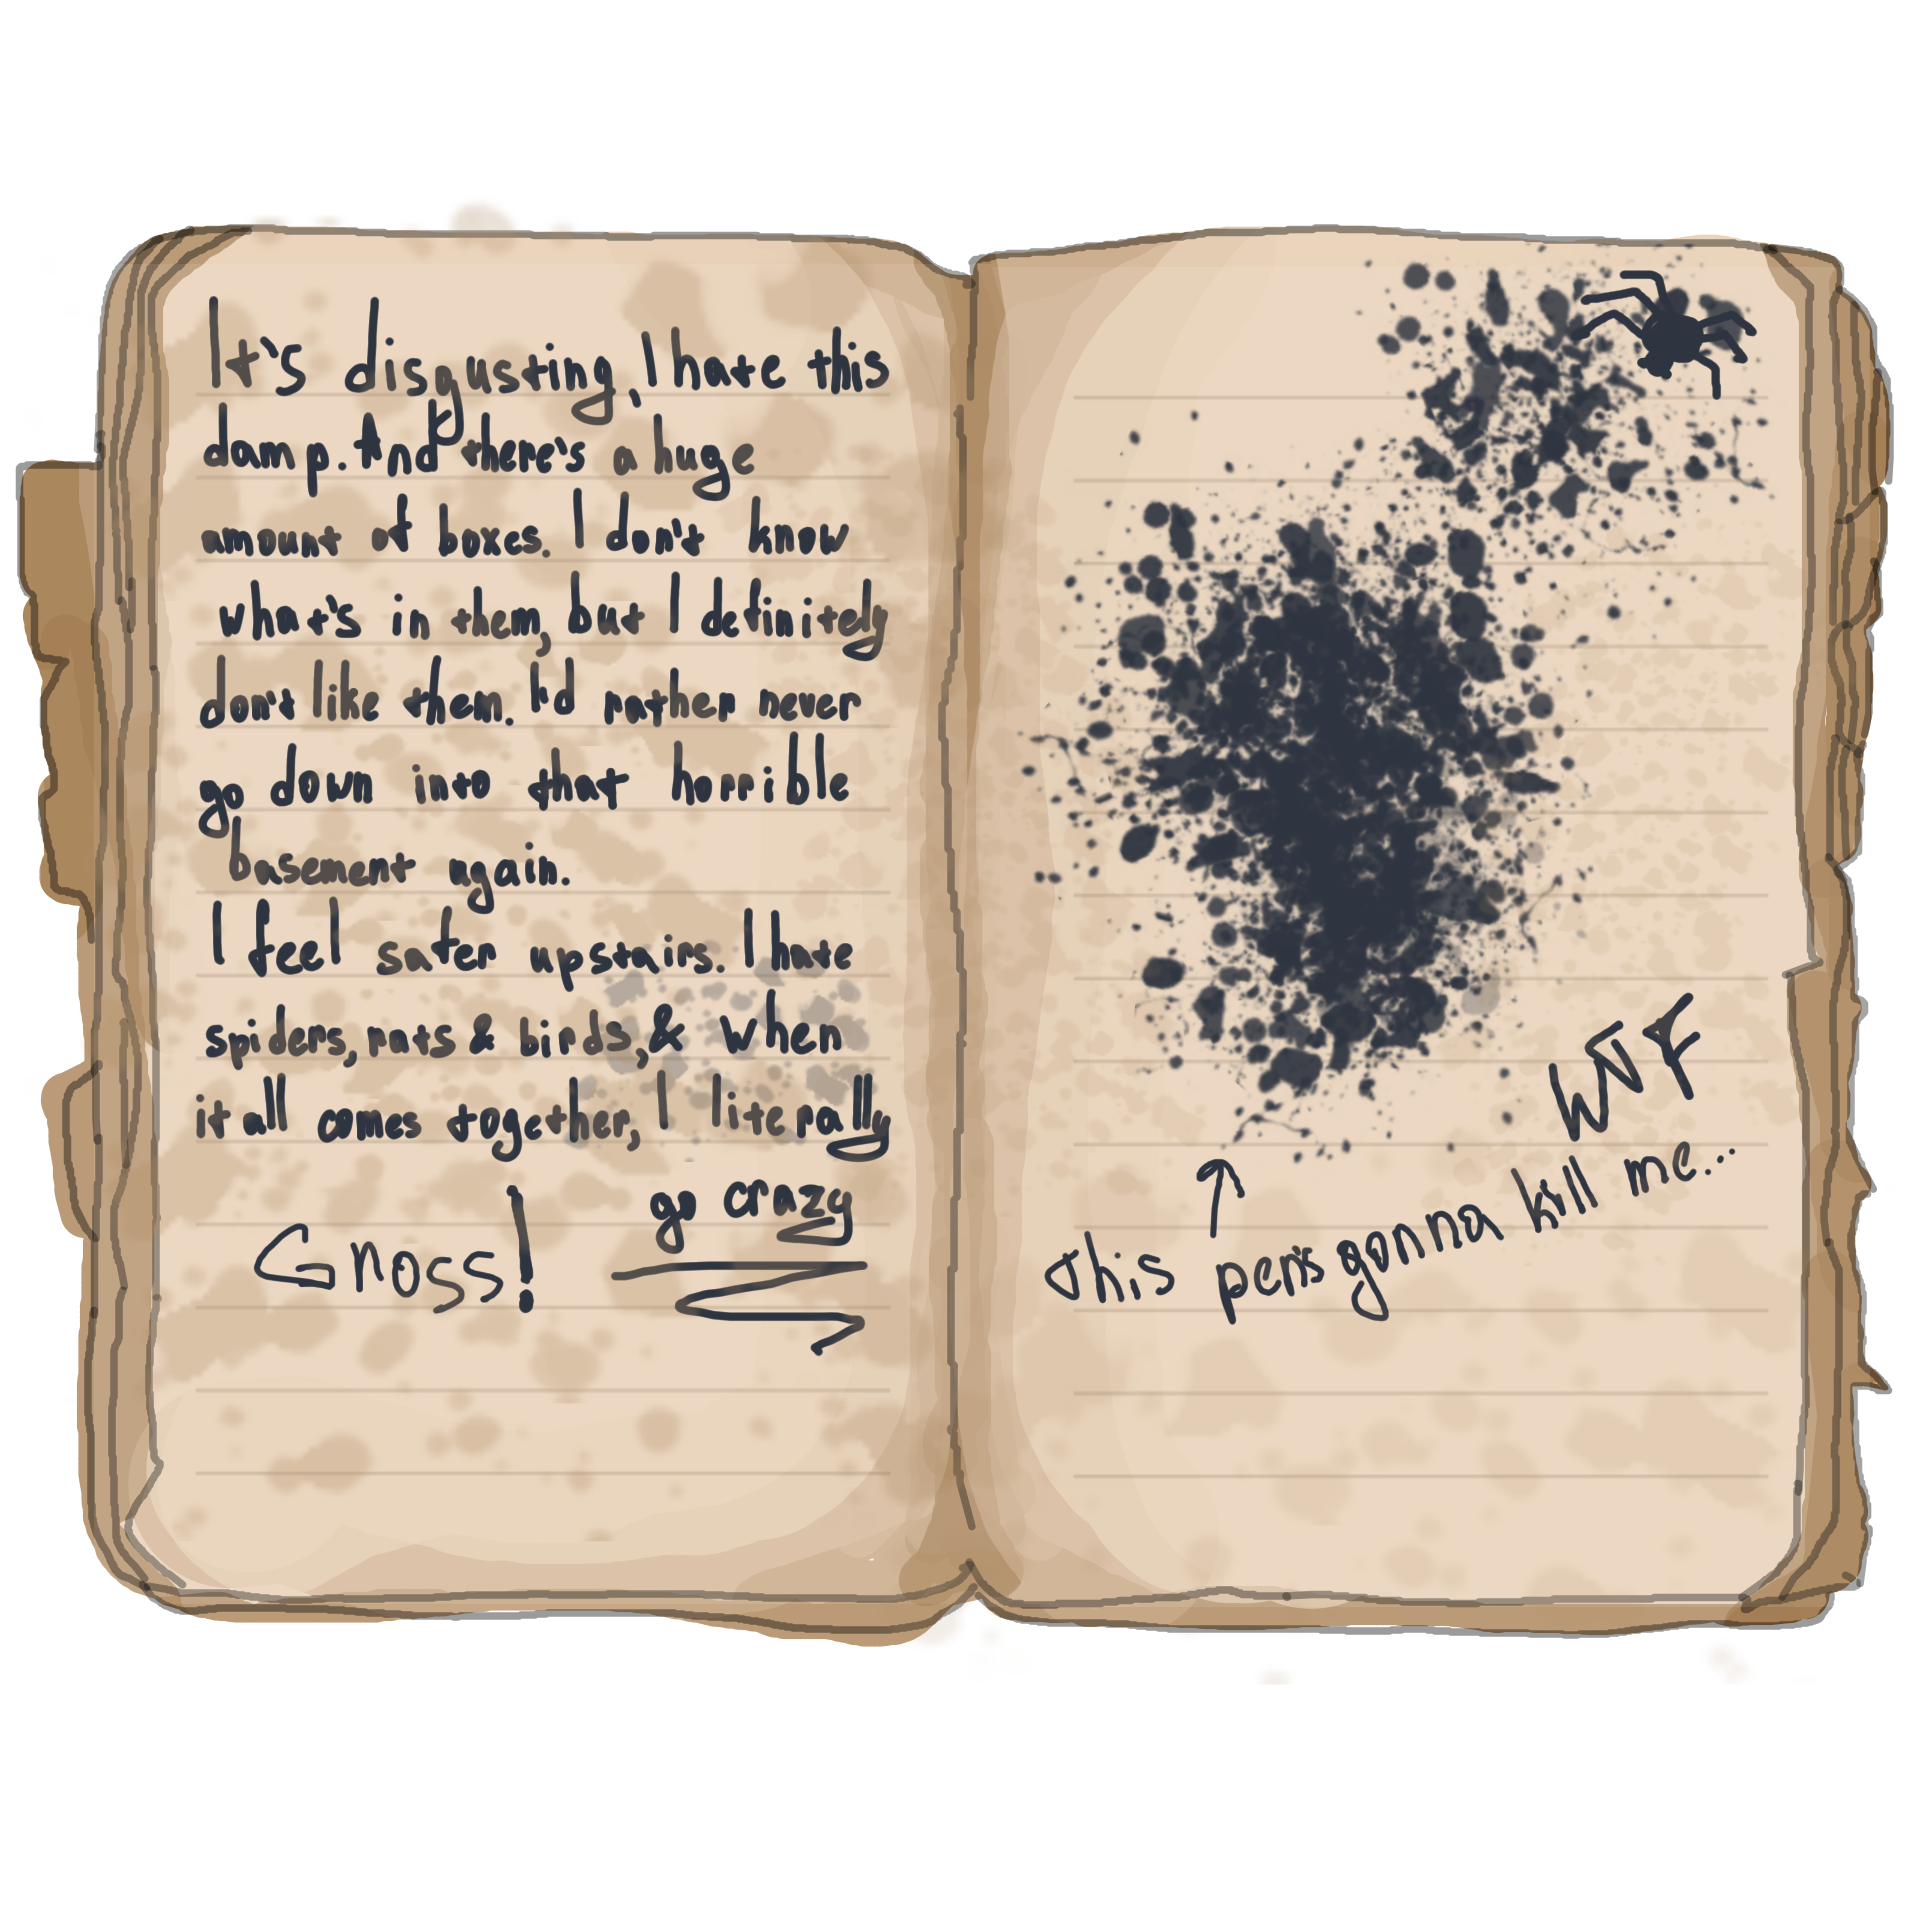 It's disgusting, I hate this
damp. And there's a huge
amount of boxes. I don't know
what's in them, but I definitely
don't like them. I'd rather never
go down into that horrible
basement again.
I feel safer upstairs. I hate
spiders, rats & birds, & when
it all comes together, I literally
go crazy
Gross!
WTF
this pen's gonna kill me...